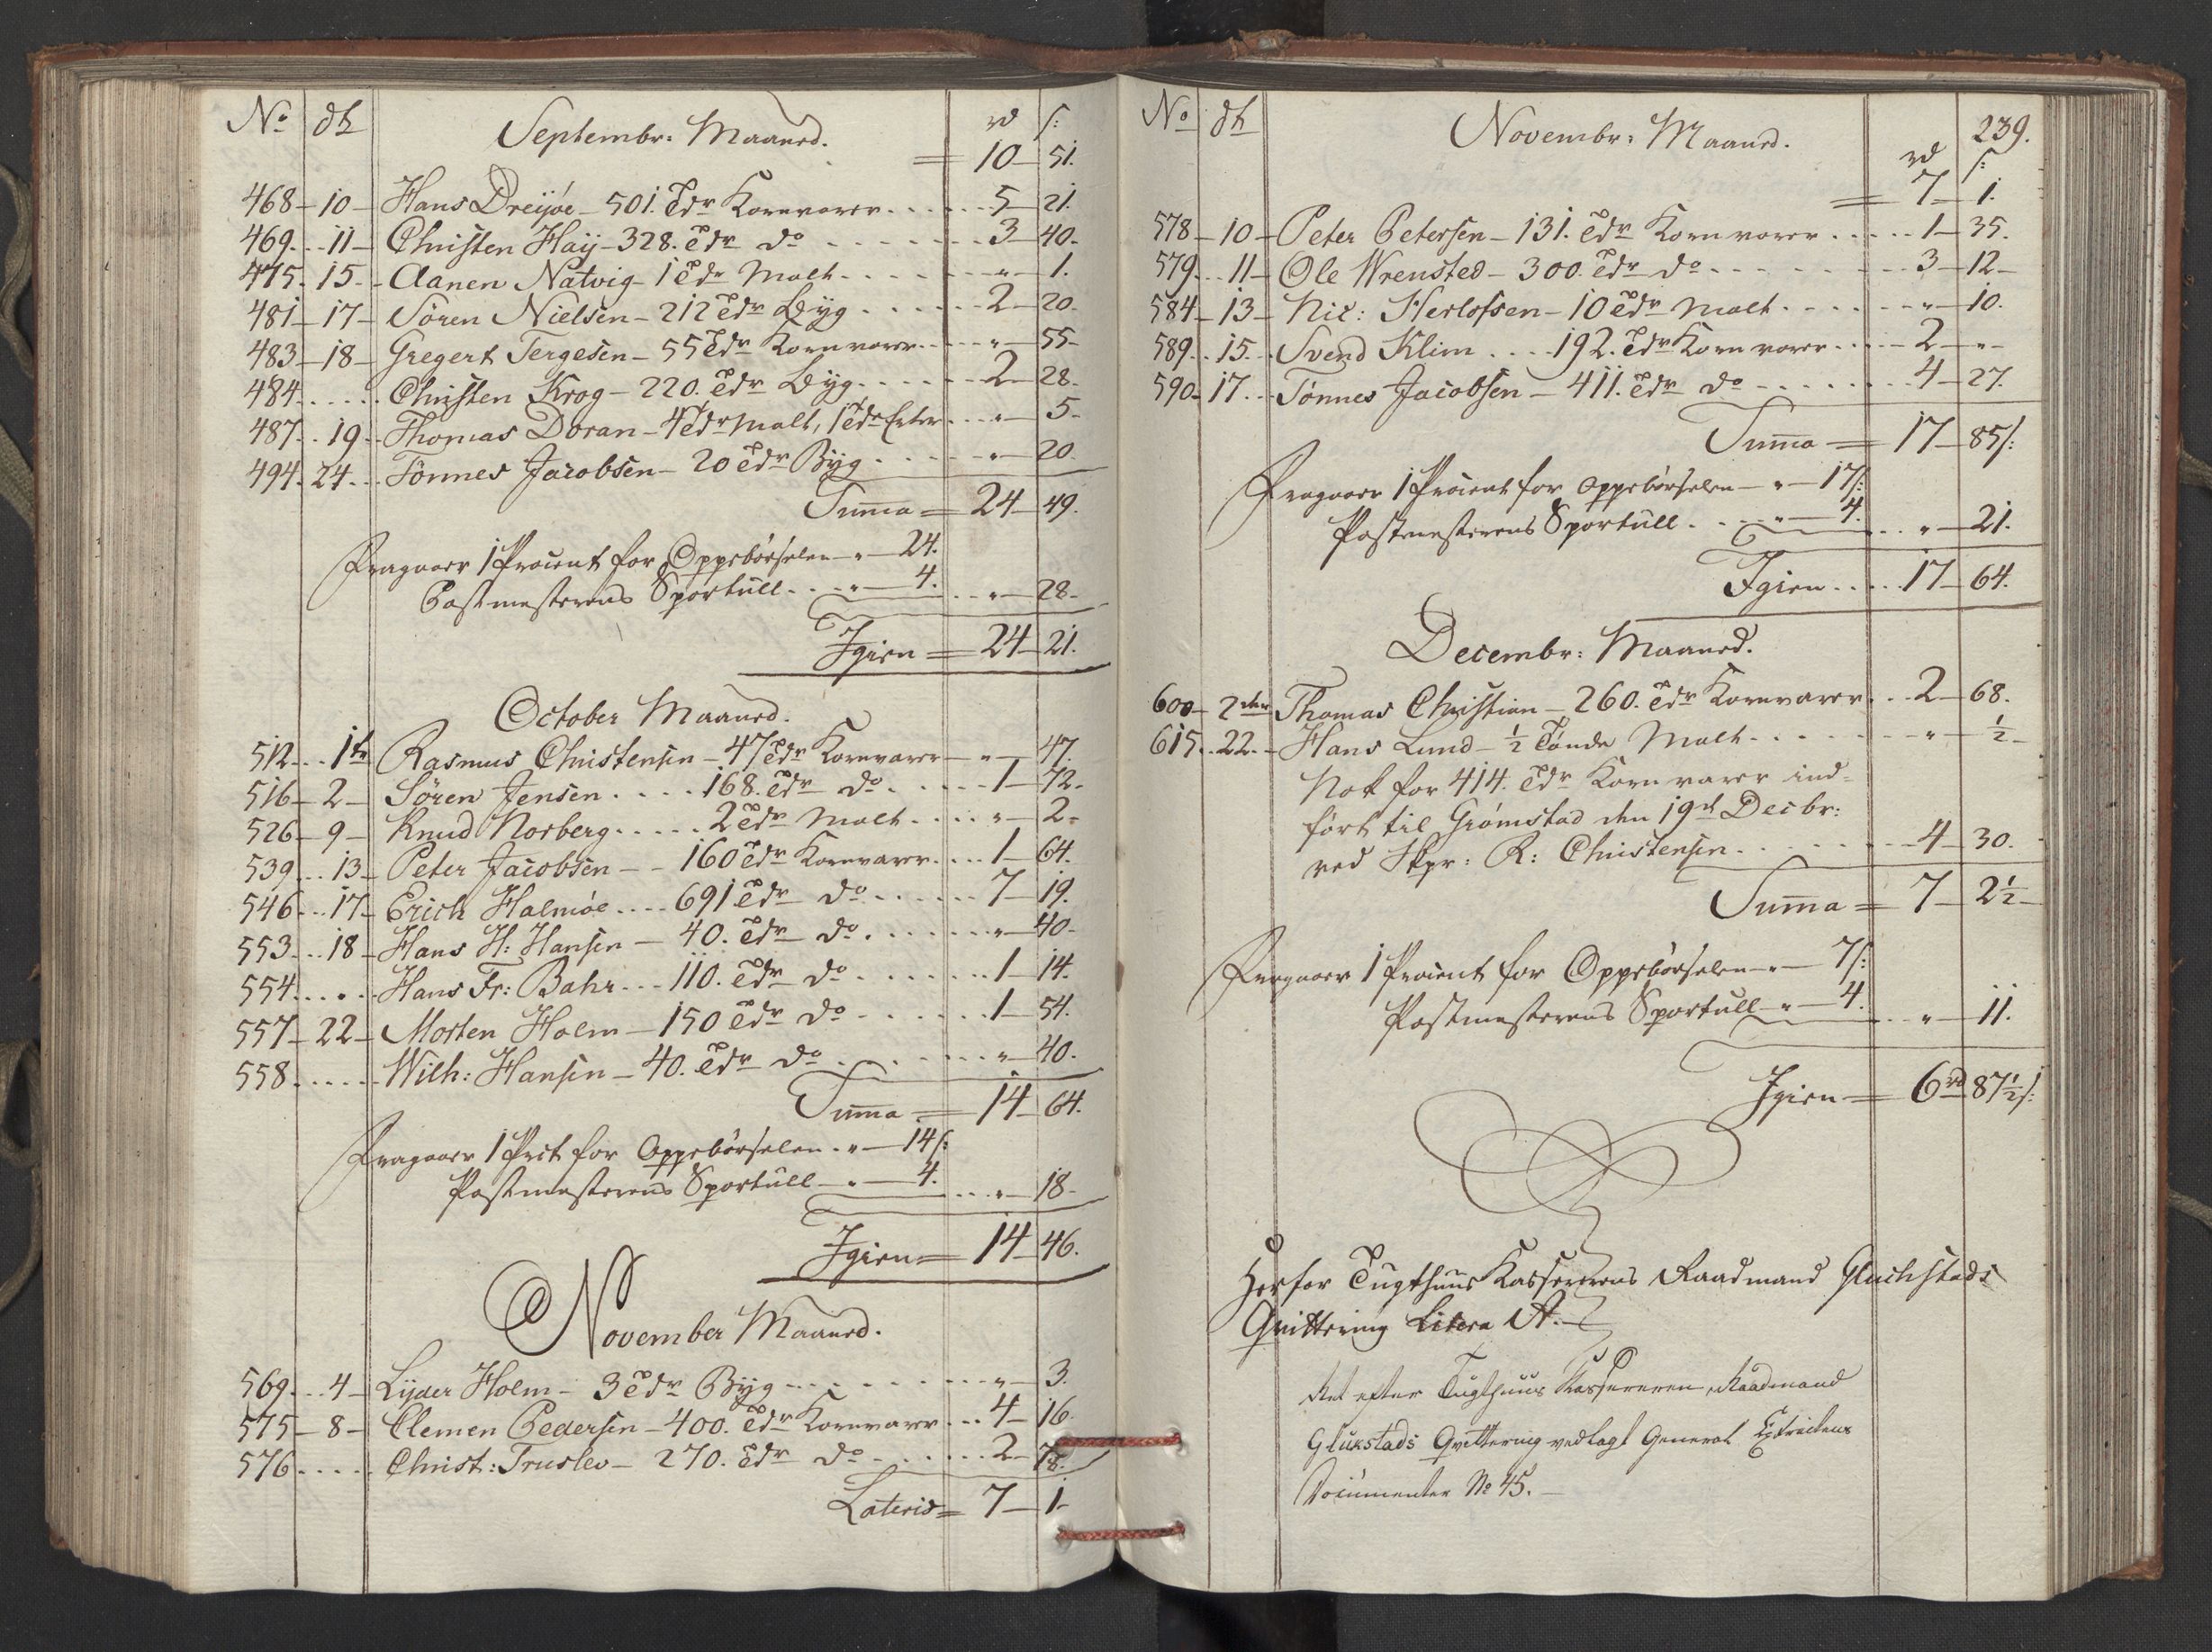 No dh Septembr: Maaned. rd s:
= 10 - 51.
468 - 10 - Hans Dreijøe - 501. Tdr Kornvarer . . . . . 5 - 21.
469 . . 11 - Christen Haij - 328. Tdr do . . . . . 3 - 40.
475 . 15 . - Aanen Natvig - 1 Tde Malt . . . . . " - 1.
481 - 17 - Søren Nielsen - 212 Tdr Byg . . . . . 2 - 20.
483 - 18 - Gregert Tergesen - 55 Tdr Kornvarer . . . . " - 55 -
484 . . . . . Christen Krog - 220. Tdr Byg . . . . . 2 - 28.
487 . . 19 . . Thomas Doran - 4 Tdr Malt, 1 Tde Erter . . . " - 5 -
494 . 24 . . . Tönnes Jacobsen - 20 Tdr Byg . . . . . " - 20.
Summa = 24 - 49.
Fragaaer 1 Procent for Oppebørselen - " - 24.
Postmesterens Sportull . . . " - 4. . . . " - 28 -
Igien = 24 - 21.
October Maaned.
512 . . . 1te Rasmus Christensen - 47 Tdr Kornvarer - " - 47.
516 - 2 - Sören Jensen . . . . 168. Tdr do . . . . . 1 - 72.
526 - 9 - Knud Norberg . . . . . 2 Tdr Malt . . . . " - 2 -
539 . . . 13 - Peter Jacobsen - - 160 Tdr Kornvarer . . . . 1 - 64.
546 . . . 17 - Erich Halmöe . . . . 691 Tdr do . . . . . 7 - 19.
553 . . . 18 - Hans H: Hansen - 40. Tdr do . . . . . " - 40 -
554 . . . . . Hans Fr: Bahr . . . 110. Tdr do . . . . . 1 - 14.
557 - 22 - Morten Holm - 150 Tdr do . . . . . 1 - 54.
558 . . . . . Wilh: Hansen - 40. Tdr do . . . . . " - 40.
Summa = 14 - 64.
Fragaaer 1 Prct for Oppebørselen . " - 14 s:
Postmesterens Sportull - " - 4. . . . " - 18 -
Igien = 14 - 46.
November Maaned.
569 . . . 4 - Lyder Holm - 3 Tdr Byg . . . . . " - 3.
575 - 8 - Clemen Pedersen - 400. Tdr Kornvarer . . . 4 - 16.
576 . . . . . Christ: Truslev - 270. Tdr do . . . . . 2 - 78.
Lateris = 7 - 1 -
239.
No dh Novembr: Maaned. rd s:
= 7 - 1.
578 - 10 - Peter Petersen - 131. Tdr Kornvarer . . . . . 1 - 35.
579 . . . 11 - Ole Wrensted - 300. Tdr do . . . . . 3 - 12 -
584 - 13 - Nic: Herlofsen - 10 Tdr Malt . . . . . " - 10.
589 . . 15 . . Svend Klim . . . . 192. Tdr Kornvarer . . . . . 2 - " -
590 - 17 . . . Tönnes Jacobsen - 411. Tdr do . . . . . 4 - 27.
Summa = 17 - 85 s:
Fragaaer 1 Procent for Oppebørselen - " - 17 s:
Postmesterens Sportull . . . " - 4. . . . " - 21.
Igien . . . . . 17 - 64.
Decembr: Maaned.
600 - 2den Thomas Christian - 260. Tdr Kornvarer . . . 2 - 68.
615 . . 22 . - Hans Lund - ½ Tønde Malt . . . . . " - ½ -
Nok for 414. Tdr Kornvarer ind-
ført til Grömstad den 19d Decbr:
ved Skpr: R: Christensen . . . . . 4 - 30.
Summa = 7 - 2½ -
Fragaaer 1 Procent for Oppebørselen - " - 7 s:
Postmesterens Sportull - " - 4. . . . " - 11.
Igien = 6 rd 87½ s:
Herfor Tugthuus Kassererens Raadmand Gluchstads
Qvittering Litera A. -
Ret efter Tugthuus Kassereren, Raadmand
Glükstads Qvittering vedlagt General Extractens
Documenter No 45. -